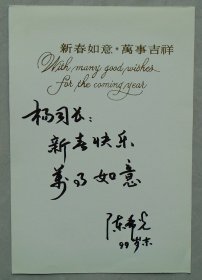 新春如意·萬事吉祥
With many good wishes
for the coming year
杨司长：
新春快乐
万事如意
陈希
99岁末